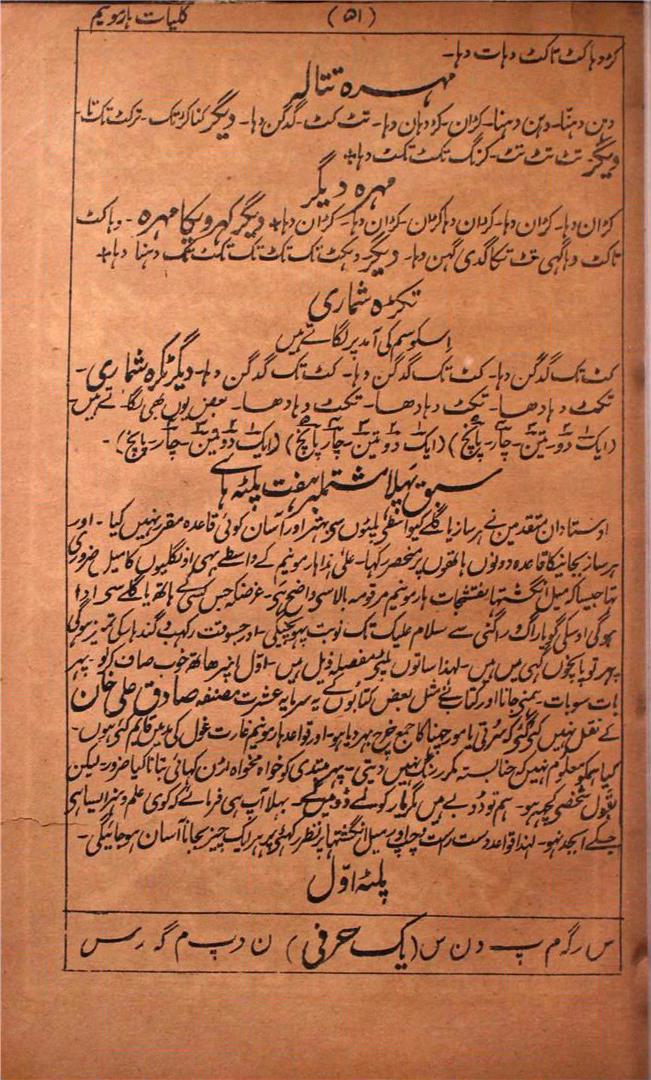 کلیات ہارمونیم (۵۱)
کڑدہاکٹ تاکٹ دہات دہا۔
مہرہ تتالہ
دہن دہنّا۔ دہن دہنا۔ کڑان۔ کڑدہان دہا۔ تٹ کٹ۔ گدگن دہا۔ دیگر کناکڑتک۔ ترکٹ تک تا۔
دیگر تٹ تٹ تٹ۔ کڑنگ تکٹ تکٹ دہا+
مہرہ دیگر
کڑان دہا۔ کڑان دہا۔ کڑدان دہاکڑان۔ کڑان دہا۔ کڑان دہا+ دیگر کہرویکا مہرہ۔ دہاکٹ
تاکٹ دہاگہی تٹ تکا گدی گہن دہا۔ دیگر دہکٹ تک تکٹ تک تکٹ تک دہنا دہا+
ٹکڑہ شماری
اِسکو سم کی آمد پر لگاتے ہیں
کٹ تک گدگن دہا۔ کٹ تک گدگن دہا۔ کٹ تک گدگن دہا۔ دیگر ٹکڑہ شماری۔
تکٹ دہادھا۔ تکٹ دہادھا۔ تکٹ دہادھا۔ بعض یوں بھی لگاتے ہیں
(ایک دو۔ تین۔ چار۔ پانچ) (ایک دو تین۔ چار پانچ) (ایک دو تین۔ چار۔ پانچ)۔
سبق پہلا مشتملبر ہفت پلٹہ ہاے
اوستادان متقدمین نے ہر ساز یا گلے کیواسطے پلیٹوں سی بہتر اور آسان کوئی قاعدہ مقرر نہیں کیا۔ اور
ہر ساز بجانیکا قاعدہ دونوں ہاتھوں پر منحصر کہا۔ علیٰ ہذا ہارمونیم کے واسطے بہی اونگلیوں کا میل ضروری
تہا جیسا کہ میل انگشتہا ہارمونیم مرقومہ بالا سی واضح ہی۔ غرضکہ جس کسی کے ہاتھ یا گلے سی ادا
ہوگی اوسکی گویا راگ و راگنی سے سلام علیک تک نوبت پہوچیگی۔ اور جسوقت رکہب و گندہار کی تمیز ہوگی
پہر تو پانچوں گہی میں ہیں۔ لہذا ساتوں پلٹی مفصلہ ذیل ہیں۔ اوّل انپر ہاتھ خوب صاف کرو۔ پہر
بات سوبات۔ یعنی جانا اور کتاب مثل بعض کتابوں کے یہ سرمایہ عشرت مصنفہ صادق علی خان
کے نقل نہیں کی گئی کہ سُرتی یا مورچہنا کا جمع خرچ بہر دیا ہو۔ اور قواعد ہارمونیم غارت غول کی مد میں قایم کئی ہوں۔
کیا ہمکو معلوم نہیں کہ حنا بستہ مکرر رنگ نہیں دیتی۔ پہر مبتدی کو خواہ مخواہ اڑن کہائی بتانا کیا ضرور۔ لیکن
بقول شخصی کچہ ہو۔ ہم تو ڈوبے ہیں مگر یار کو لے ڈوبیں گے۔ بہلا آپ ہی فرمائے کہ کوی علم و ہنر ایسا ہی
جسکے ابجد نہو۔ لہذا قواعد دست راست و چپ اور میل انگشتہا پر نظر رکہنی پر ہر ایک چیز بجانا آسان ہو جائیگی۔
پلٹہ اوّل
س ر گ م پ د ن س (یک حرفی) ن د پ م گ ر س